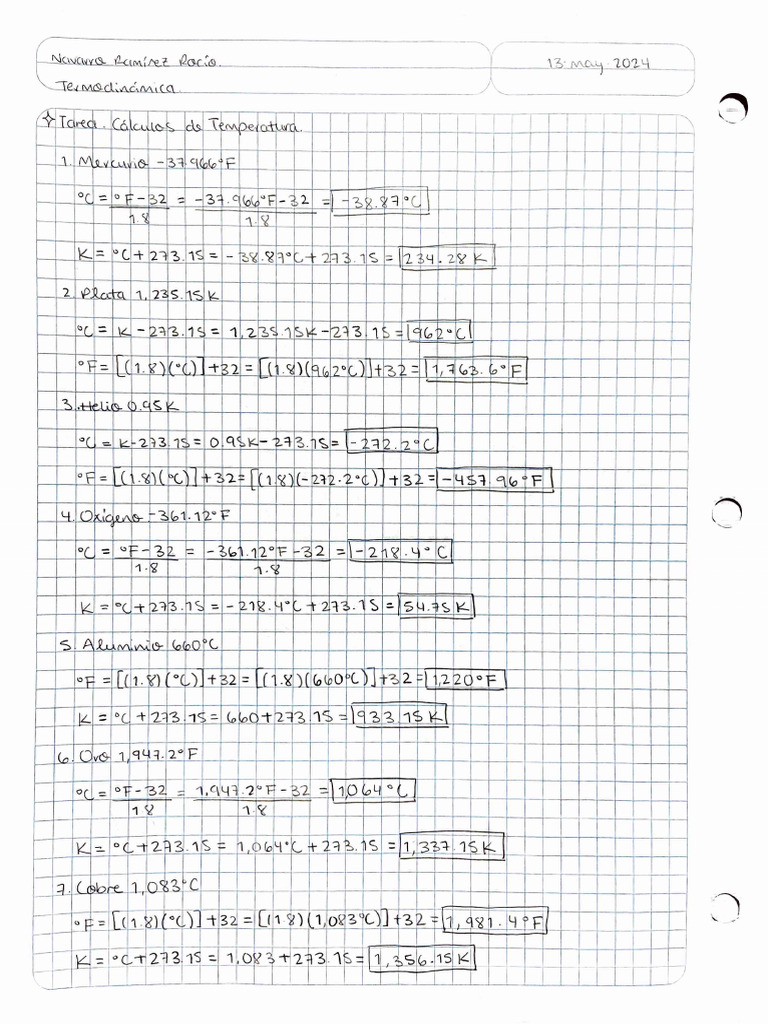 Navarro Ramírez Rocío.
13·may·2024
Termodinámica.
Tarea. Cálculos de Temperatura.
1. Mercurio -37.966°F
°C = °F-32 / 1.8 = -37.966°F-32 / 1.8 = -38.87°C
K = °C + 273.15 = -38.87°C + 273.15 = 234.28 K
2. Plata 1,235.15K
°C = K - 273.15 = 1,235.15K - 273.15 = 962°C
°F = [(1.8)(°C)] + 32 = [(1.8)(962°C)] + 32 = 1,763.6°F
3. Helio 0.95K
°C = K - 273.15 = 0.95K - 273.15 = -272.2°C
°F = [(1.8)(°C)] + 32 = [(1.8)(-272.2°C)] + 32 = -457.96°F
4. Oxígeno -361.12°F
°C = °F-32 / 1.8 = -361.12°F-32 / 1.8 = -218.4°C
K = °C + 273.15 = -218.4°C + 273.15 = 54.75K
5. Aluminio 660°C
°F = [(1.8)(°C)] + 32 = [(1.8)(660°C)] + 32 = 1,220°F
K = °C + 273.15 = 660 + 273.15 = 933.15K
6. Oro 1,947.2°F
°C = °F-32 / 1.8 = 1,947.2°F-32 / 1.8 = 1,064°C
K = °C + 273.15 = 1,064°C + 273.15 = 1,337.15K
7. Cobre 1,083°C
°F = [(1.8)(°C)] + 32 = [(1.8)(1,083°C)] + 32 = 1,981.4°F
K = °C + 273.15 = 1,083 + 273.15 = 1,356.15K